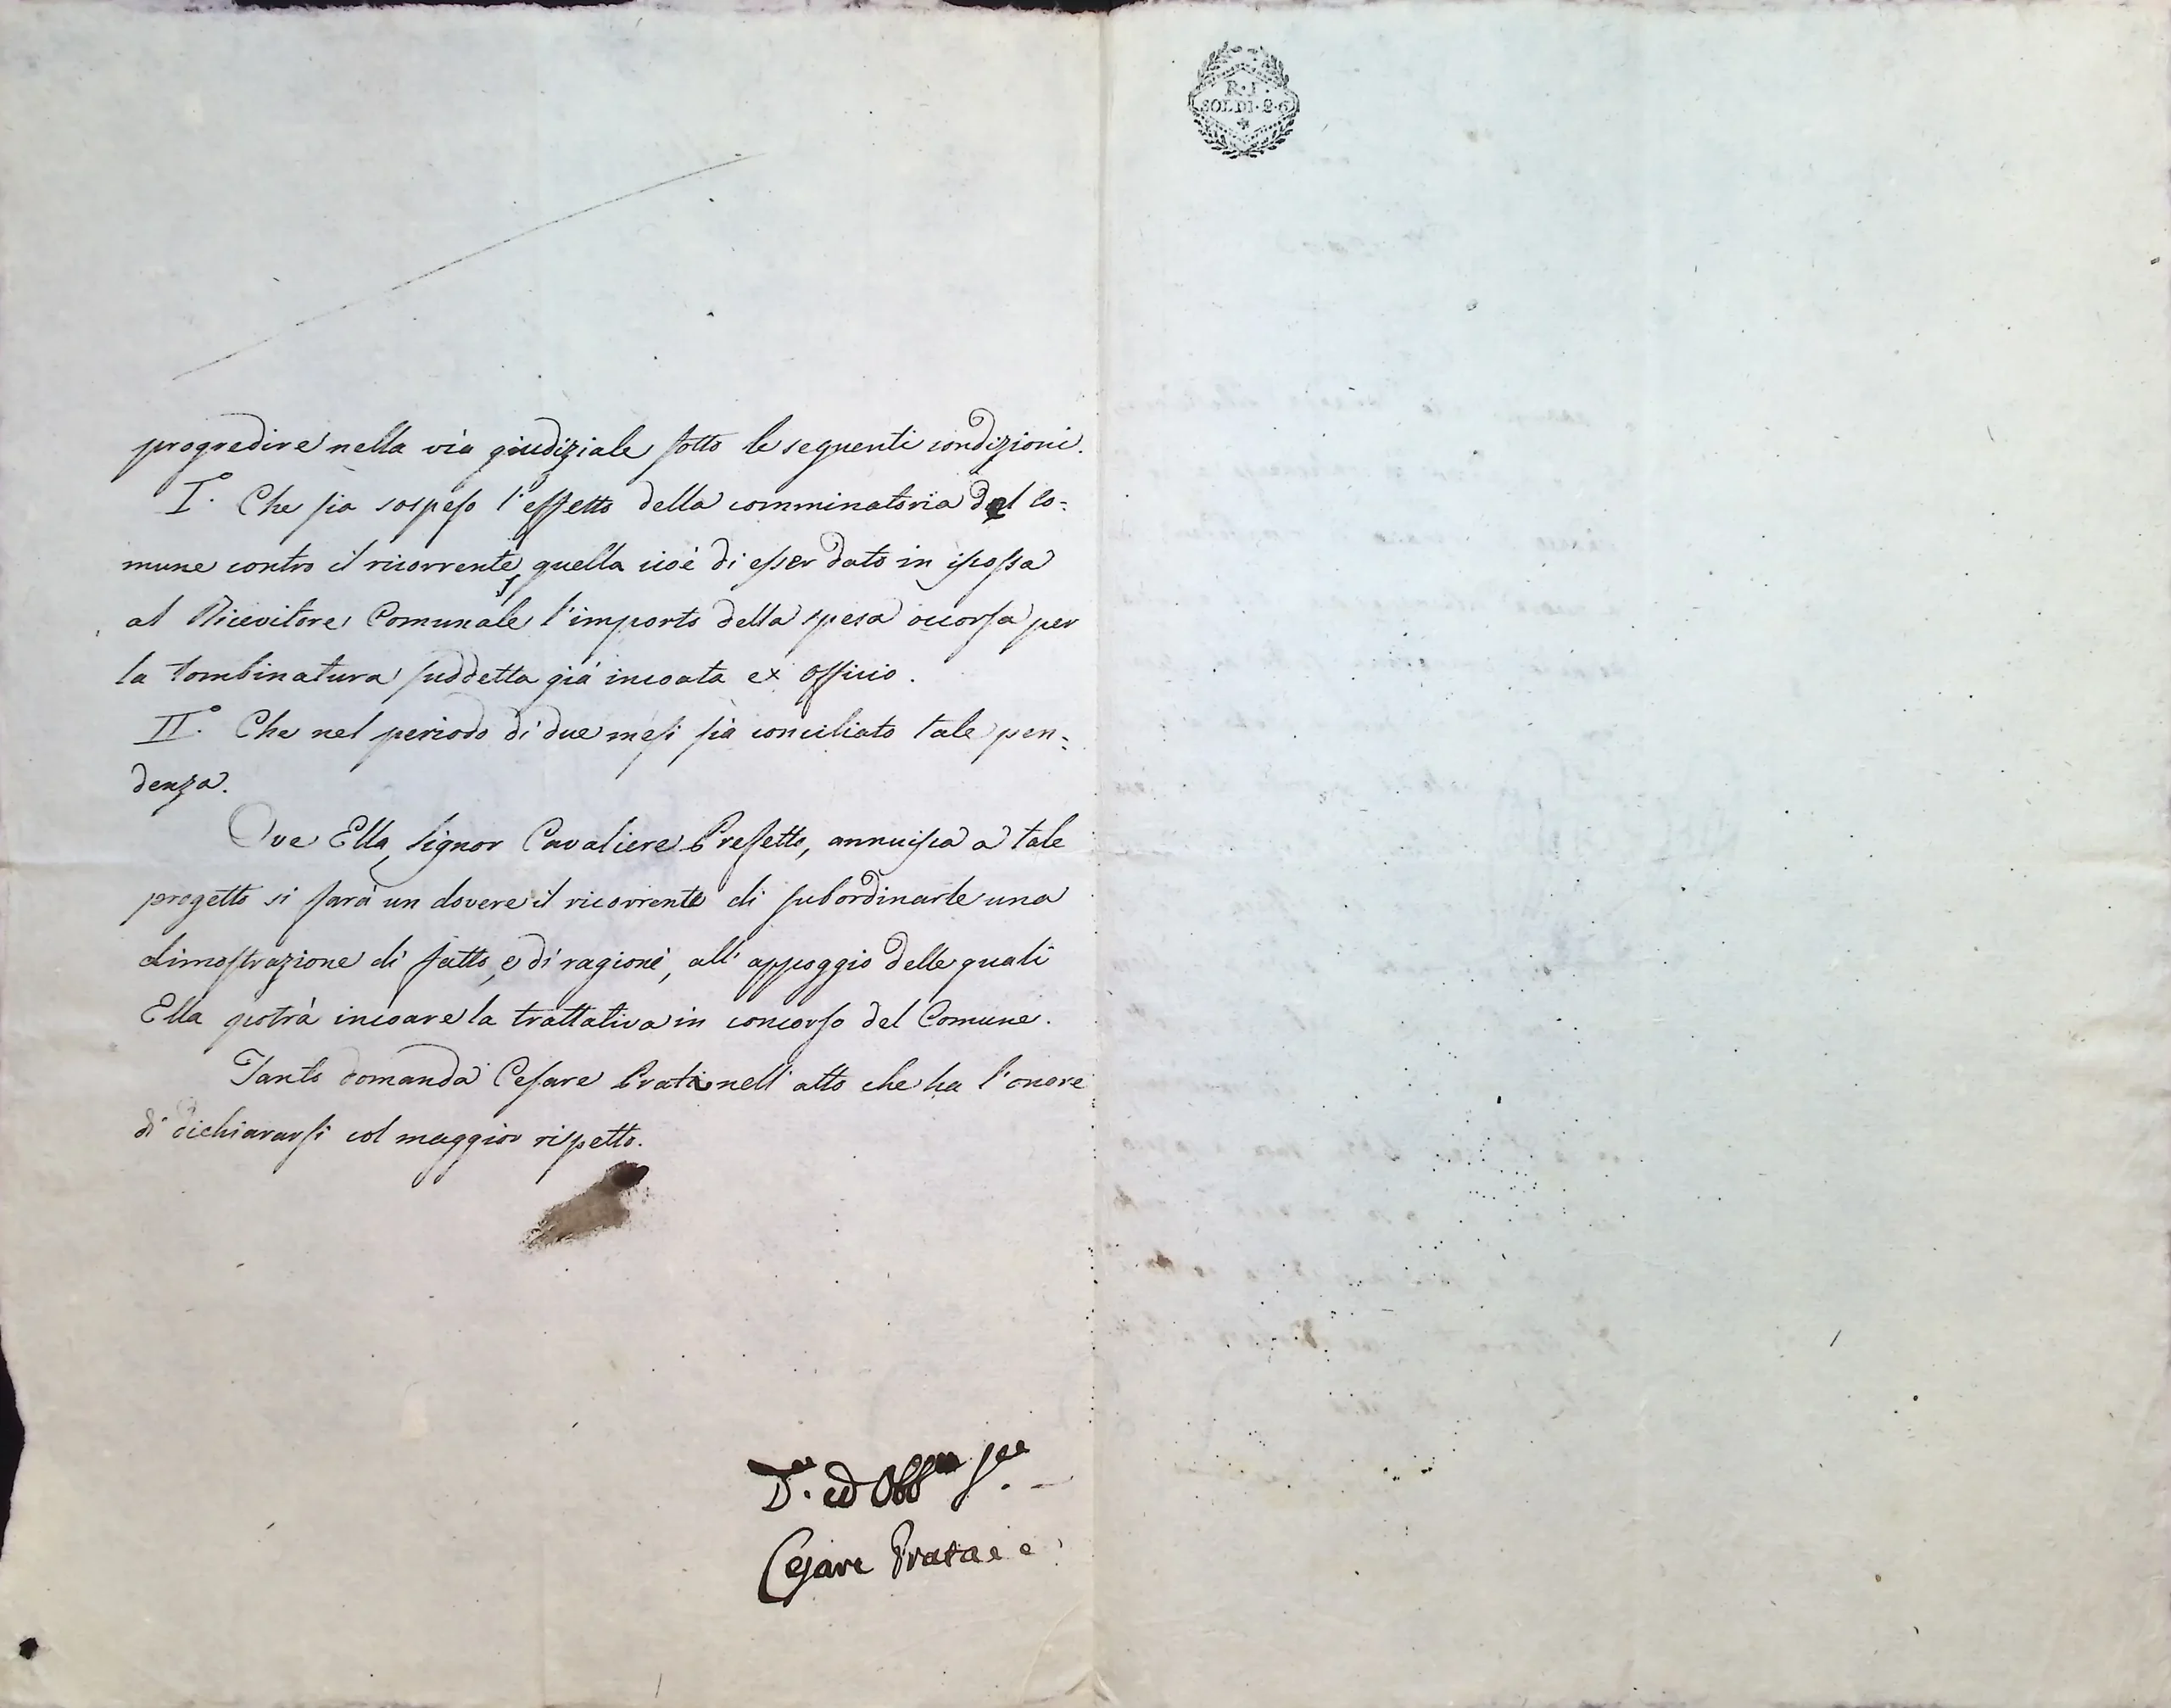 progredire nella via giudiziale sotto le seguenti condizioni.
I.° Che sia sospeso l'effetto della comminatoria del Co=
mune contro il ricorrente, quella cioè di esser dato in iscossa
al Ricevitore Comunale l'importo della spesa occorsa per
la tombinatura suddetta già incoata ex officio.
II.° Che nel periodo di due mesi sia conciliato tale pen=
denza.
Ove Ella, Signor Cavaliere Prefetto, annuisca a tale
progetto si farà un dovere il ricorrente di subordinarle una
dimostrazione di fatto, e di ragioni, all'appoggio delle quali
Ella potrà incoare la trattativa in concorso del Comune.
Tanto domanda Cesare Prati nell'atto che ha l'onore
di dichiararsi col maggior rispetto.
ed Obb
Cesare
R. I.
SOLDI. 2.6